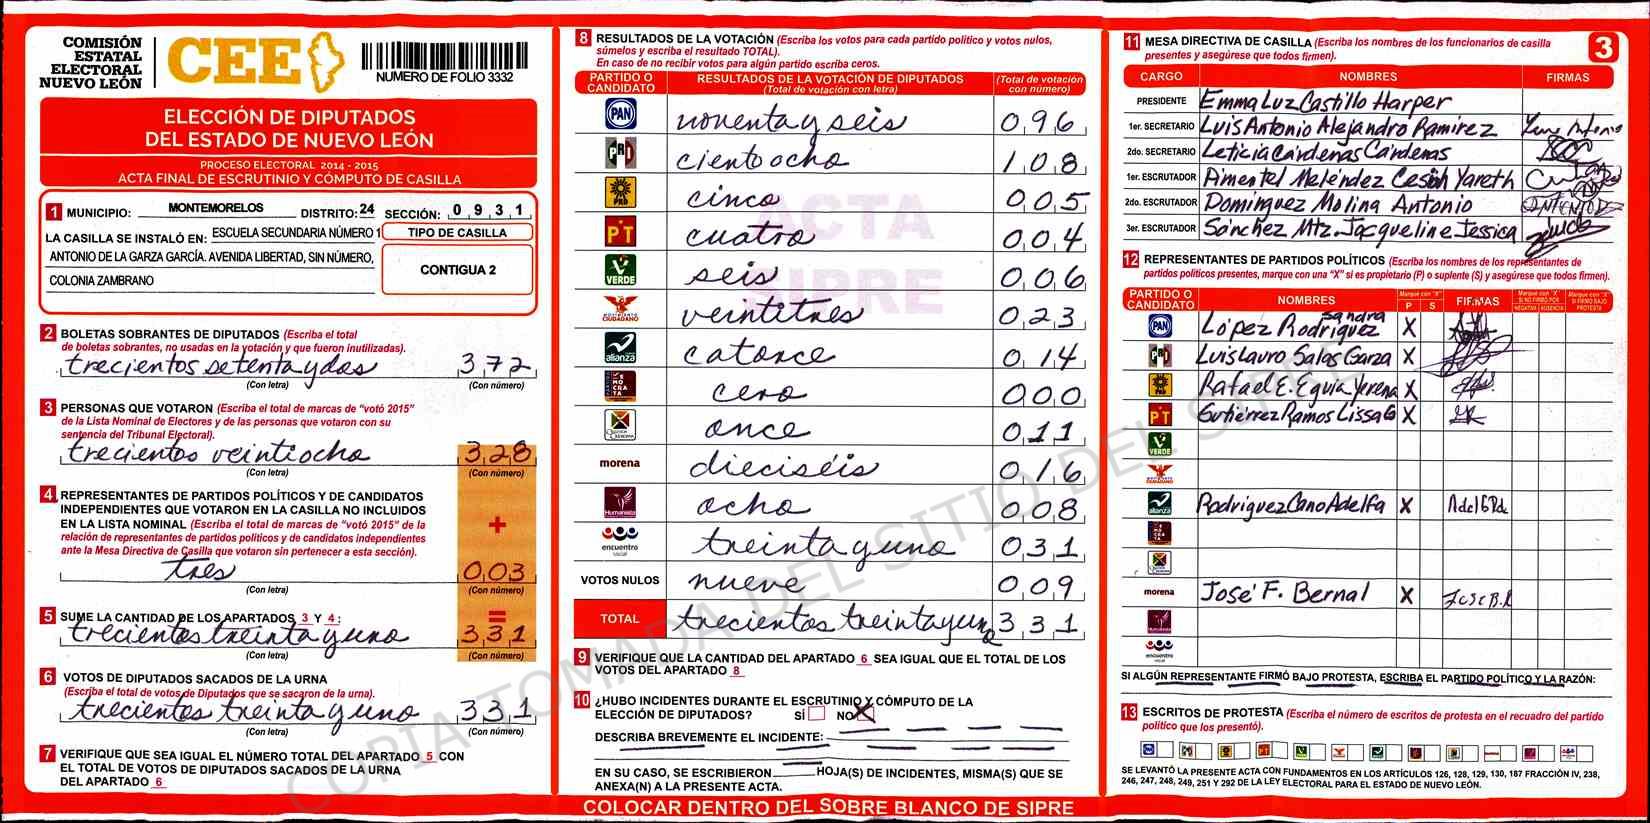 COMISIÓN
ESTATAL
ELECTORAL
NUEVO LEÓN
CEE
NUMERO DE FOLIO 3332
ELECCIÓN DE DIPUTADOS
DEL ESTADO DE NUEVO LEÓN
PROCESO ELECTORAL 2014 - 2015
ACTA FINAL DE ESCRUTINIO Y CÓMPUTO DE CASILLA
1 MUNICIPIO: MONTEMORELOS DISTRITO: 24 SECCIÓN: 0 9 3 1
LA CASILLA SE INSTALÓ EN: ESCUELA SECUNDARIA NÚMERO 1
ANTONIO DE LA GARZA GARCÍA. AVENIDA LIBERTAD, SIN NÚMERO,
COLONIA ZAMBRANO
TIPO DE CASILLA
CONTIGUA 2
2 BOLETAS SOBRANTES DE DIPUTADOS (Escriba el total
de boletas sobrantes, no usadas en la votación y que fueron inutilizadas).
trecientos setenta y dos 3 7 2
(Con letra) (Con número)
3 PERSONAS QUE VOTARON (Escriba el total de marcas de "votó 2015"
de la Lista Nominal de Electores y de las personas que votaron con su
sentencia del Tribunal Electoral).
trecientos veintiocho 3 2 8
(Con letra) (Con número)
4 REPRESENTANTES DE PARTIDOS POLÍTICOS Y DE CANDIDATOS
INDEPENDIENTES QUE VOTARON EN LA CASILLA NO INCLUIDOS
EN LA LISTA NOMINAL (Escriba el total de marcas de "votó 2015" de la
relación de representantes de partidos políticos y de candidatos independientes
ante la Mesa Directiva de Casilla que votaron sin pertenecer a esta sección).
+
tres 0 0 3
(Con letra) (Con número)
=
5 SUME LA CANTIDAD DE LOS APARTADOS 3 Y 4:
trecientos treinta y uno 3 3 1
(Con letra) (Con número)
6 VOTOS DE DIPUTADOS SACADOS DE LA URNA
(Escriba el total de votos de Diputados que se sacaron de la urna).
trecientos treinta y uno 3 3 1
(Con letra) (Con número)
7 VERIFIQUE QUE SEA IGUAL EL NÚMERO TOTAL DEL APARTADO 5 CON
EL TOTAL DE VOTOS DE DIPUTADOS SACADOS DE LA URNA
DEL APARTADO 6
8 RESULTADOS DE LA VOTACIÓN (Escriba los votos para cada partido político y votos nulos,
súmelos y escriba el resultado TOTAL).
En caso de no recibir votos para algún partido escriba ceros.
PARTIDO O CANDIDATO RESULTADOS DE LA VOTACIÓN DE DIPUTADOS (Total de votación con letra) (Total de votación con número)
PAN noventa y seis 0 9 6
PRI ciento ocho 1 0 8
PRD cinco 0 0 5
PT cuatro 0 0 4
VERDE seis 0 0 6
MOVIMIENTO CIUDADANO veintitres 0 2 3
alianza catorce 0 1 4
cero 0 0 0
once 0 1 1
morena dieciséis 0 1 6
Humanista ocho 0 0 8
encuentro social treinta y uno 0 3 1
VOTOS NULOS nueve 0 0 9
TOTAL trecientos treinta y uno 3 3 1
ACTA
SIPRE
9 VERIFIQUE QUE LA CANTIDAD DEL APARTADO 6 SEA IGUAL QUE EL TOTAL DE LOS
VOTOS DEL APARTADO 8
10 ¿HUBO INCIDENTES DURANTE EL ESCRUTINIO Y CÓMPUTO DE LA
ELECCIÓN DE DIPUTADOS? SÍ NO X
DESCRIBA BREVEMENTE EL INCIDENTE:
EN SU CASO, SE ESCRIBIERON HOJA(S) DE INCIDENTES, MISMA(S) QUE SE
ANEXA(N) A LA PRESENTE ACTA.
11 MESA DIRECTIVA DE CASILLA (Escriba los nombres de los funcionarios de casilla
presentes y asegúrese que todos firmen).
3
CARGO NOMBRES FIRMAS
PRESIDENTE Emma Luz Castillo Harper
1er. SECRETARIO Luis Antonio Alejandro Ramirez
2do. SECRETARIO Leticia Cárdenas Cárdenas
1er. ESCRUTADOR Pimentel Meléndez Yareth
2do. ESCRUTADOR Dominguez Molina Antonio
3er. ESCRUTADOR Sánchez Mtz. Jacqueline Jessica
12 REPRESENTANTES DE PARTIDOS POLÍTICOS (Escriba los nombres de los representantes de
partidos políticos presentes, marque con una "X" si es propietario (P) o suplente (S) y asegúrese que todos firmen).
PARTIDO O CANDIDATO NOMBRES Marque con "X" P S FIRMAS Marque con "X" SI NO FIRMÓ POR NEGATIVA AUSENCIA Marque con "X" SI FIRMÓ BAJO PROTESTA
PAN López Rodríguez Sandra X
PRI Luis Lauro Salas Garza X
PRD Rafael E. Eguia X
PT Gutiérrez Ramos Lissa G X
VERDE
alianza Rodriguez Cano Adelfa X
morena José F. Bernal X
encuentro social
SI ALGÚN REPRESENTANTE FIRMÓ BAJO PROTESTA, ESCRIBA EL PARTIDO POLÍTICO Y LA RAZÓN:
13 ESCRITOS DE PROTESTA (Escriba el número de escritos de protesta en el recuadro del partido
político que los presentó).
SE LEVANTÓ LA PRESENTE ACTA CON FUNDAMENTOS EN LOS ARTÍCULOS 126, 128, 129, 130, 187 FRACCIÓN IV, 238,
246, 247, 248, 249, 251 Y 292 DE LA LEY ELECTORAL PARA EL ESTADO DE NUEVO LEÓN.
COLOCAR DENTRO DEL SOBRE BLANCO DE SIPRE
COPIA TOMADA DEL SITIO DEL SIPRE